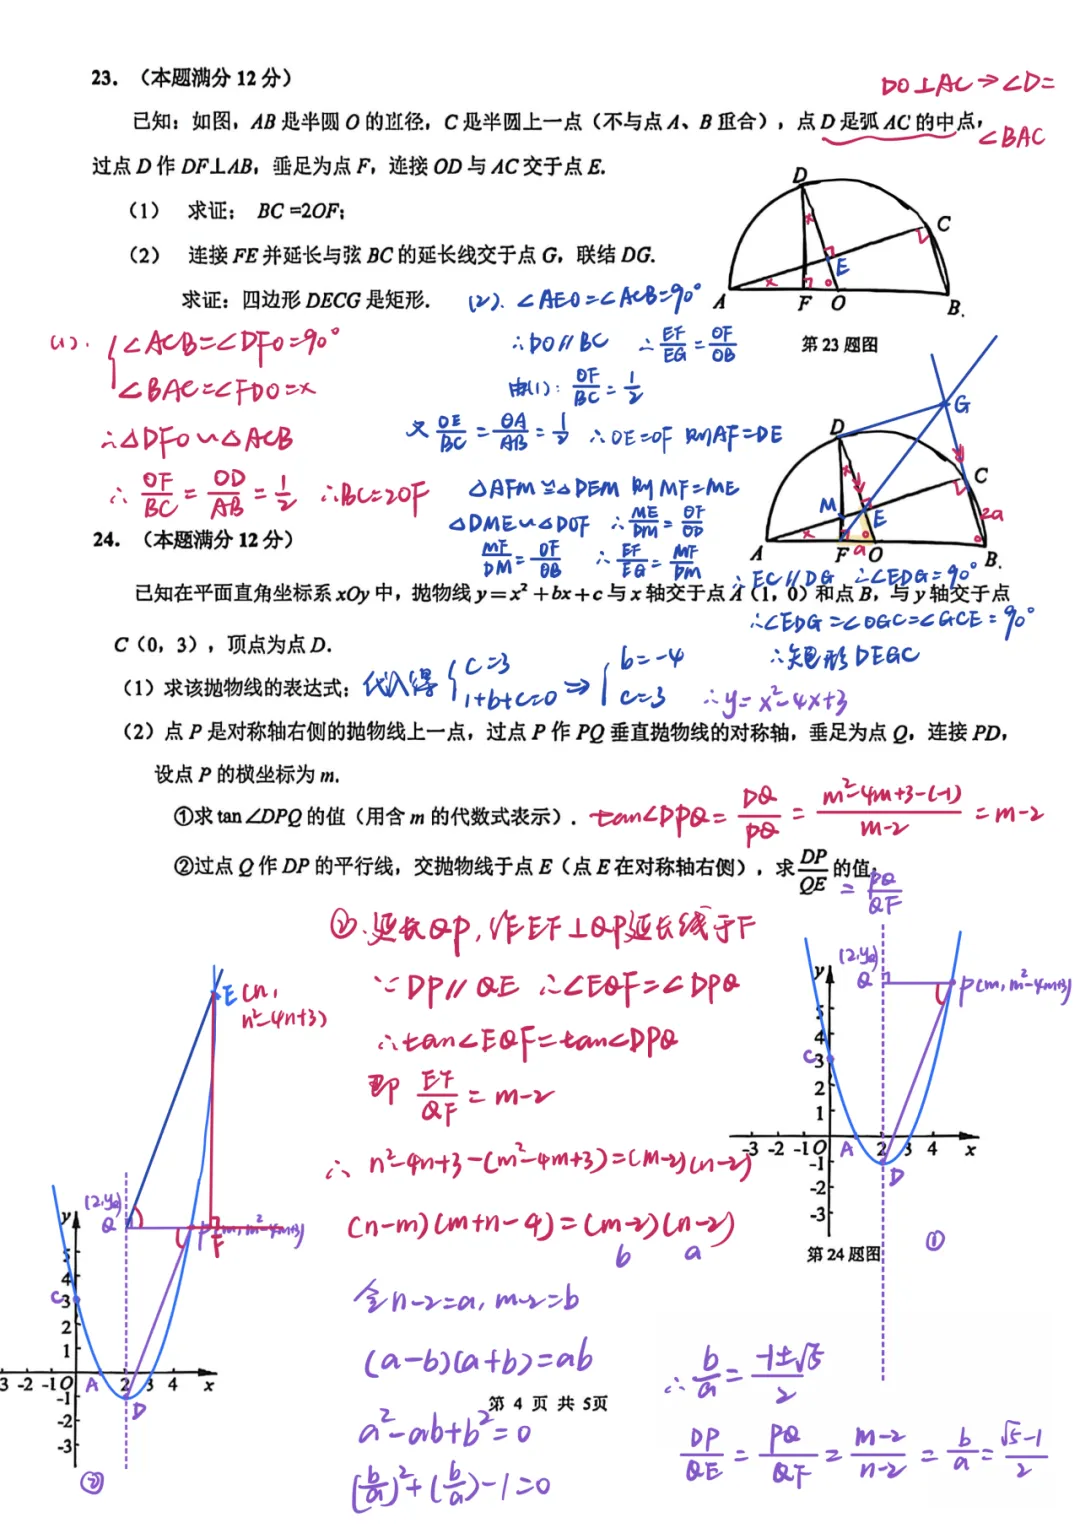 23. （本题满分 12 分）
DO⊥AC⇒∠D=
∠BAC
已知：如图，AB 是半圆 O 的直径，C 是半圆上一点（不与点 A、B 重合），点 D 是弧 AC 的中点，
过点 D 作 DF⊥AB，垂足为点 F，连接 OD 与 AC 交于点 E.
（1） 求证： BC =2OF；
（2） 连接 FE 并延长与弦 BC 的延长线交于点 G，联结 DG.
求证：四边形 DECG 是矩形.
D
C
x
E
A
x
F
O
B.
第 23 题图
(1). { ∠ACB=∠DFO=90°
∠BAC=∠FDO=x
∴△DFO∽△ACB
∴ OF/BC = OD/AB = 1/2 ∴BC=2OF
(2). ∠AEO=∠ACB=90°
∴DO∥BC ∴ EF/EG = OF/OB
由(1): OF/BC = 1/2
又 OE/BC = OA/AB = 1/2 ∴OE=OF 则AF=DE
△AFM≌△DEM 则MF=ME
△DME∽△DOF ∴ ME/DM = OF/OD
MF/DM = OF/OB ∴ EF/EG = MF/DM
∴EC∥DG ∴∠EDG=90°
∴∠EDG=∠DGC=∠GCE=90°
∴矩形DEGC
G
D
C
x
M
E
2a
A
x
F
a
O
B.
24. （本题满分 12 分）
已知在平面直角坐标系 xOy 中，抛物线 y=x²+bx+c 与 x 轴交于点 A（1，0）和点 B，与 y 轴交于点
C（0，3），顶点为点 D.
（1）求该抛物线的表达式；
代入得 { c=3
1+b+c=0 ⇒ { b=-4
c=3
∴y=x²-4x+3
（2）点 P 是对称轴右侧的抛物线上一点，过点 P 作 PQ 垂直抛物线的对称轴，垂足为点 Q，连接 PD，
设点 P 的横坐标为 m.
①求 tan∠DPQ 的值（用含 m 的代数式表示）.
tan∠DPQ= DQ/PQ = m²-4m+3-(-1)/m-2 = m-2
②过点 Q 作 DP 的平行线，交抛物线于点 E（点 E 在对称轴右侧），求 DP/QE 的值.
= PQ/QF
②.延长QP,作EF⊥QP延长线于F
∵DP∥QE ∴∠EQF=∠DPQ
∴tan∠EQF=tan∠DPQ
即 EF/QF = m-2
∴ n²-4n+3-(m²-4m+3)=(m-2)(n-2)
(n-m)(m+n-4)=(m-2)(n-2)
b a
令n-2=a, m-2=b
(a-b)(a+b)=ab
a²-ab+b²=0
(b/a)²+(b/a)-1=0
∴ b/a = -1±√5/2
DP/QE = PQ/QF = m-2/n-2 = b/a = √5-1/2
E (n,
n²-4n+3)
(2,yQ)
Q
P(m, m²-4m+3)
F
y
5
4
C
3
2
1
3 -2 -1 O A 2 3 4 x
-1
D
-2
-3
②
(2,yQ)
y
Q
P(m, m²-4m+3)
5
4
C
3
2
1
-3 -2 -1 O A 2 3 4 x
-1
D
-2
-3
①
第 24 题图
第 4 页 共 5页